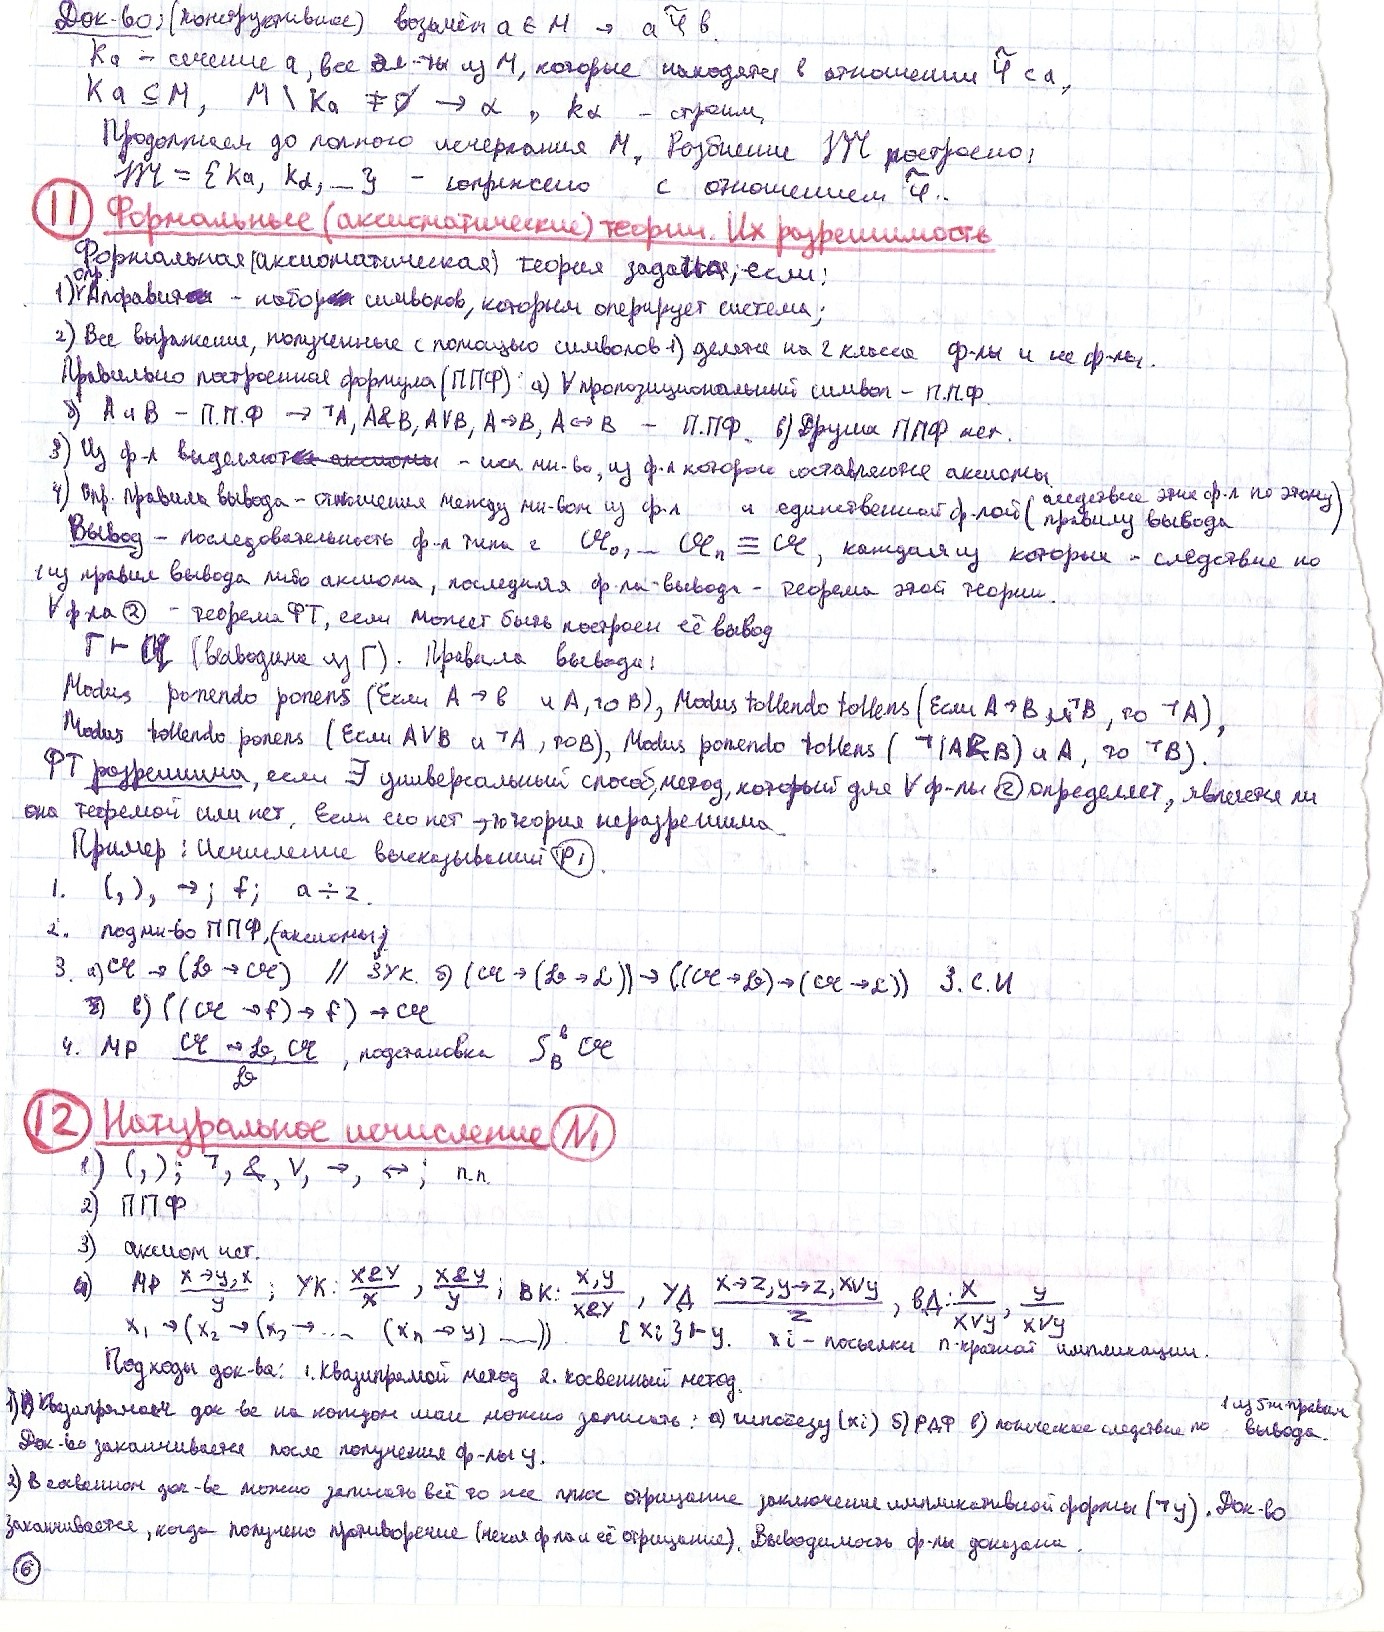 Док-во: (конструктивное) возьмём a ∈ M → a φ̃ в.
Ka – сечение a, все эл-ты из M, которые находятся в отношении φ̃ с a,
Ka ⊆ M, M \ Ka ≠ ∅ → α, kα – строим,
Продолжаем до полного исчерпания M. Разбиение 𝔐 построено:
𝔐 = {Ka, Kα, ...} – сопряжено с отношением φ̃.
11 Формальные (аксиоматические) теории. Их разрешимость
Формальная (аксиоматическая) теория задана, если:
1) опр. Алфавит – набор символов, которым оперирует система;
2) Все выражения, полученные с помощью символов 1) делятся на 2 класса ф-лы и не ф-лы.
Правильно построенная формула (ППФ): а) ∀ пропозициональный символ – П.П.Ф.
б) A и B – П.П.Ф → ¬A, A&B, A∨B, A→B, A↔B – П.ПФ. в) Других ППФ нет.
3) Из ф-л выделяются аксиомы – мн-во, из ф-л которого составляются аксиомы
4) Опр. правила вывода – отношения между мн-вом из ф-л и единственной ф-лой (следствие этих ф-л по этому правилу вывода)
Вывод – последовательность ф-л типа 2 𝔄₀, ... 𝔄ₙ ≡ 𝔄, каждая из которых – следствие по
1 из правил вывода либо аксиома, последняя ф-ла вывода – теорема этой теории.
∀ ф-ла ② – теорема ФТ, если может быть построен её вывод
Γ ⊢ 𝔄 (выводима из Γ). Правила вывода:
Modus ponendo ponens (Если A→B и A, то B), Modus tollendo tollens (Если A→B и ¬B, то ¬A),
Modus tollendo ponens (Если A∨B и ¬A, то B), Modus ponendo tollens (¬(A&B) и A, то ¬B).
ФТ разрешима, если ∃ универсальный способ, метод, который для ∀ ф-лы ② определяет, является ли
она теоремой или нет. Если его нет → то теория неразрешима.
Пример: Исчисление высказываний P₁.
1. (, ), →; f; a ÷ z.
2. подмн-во ППФ, (аксиомы)
3. а) 𝔄 → (𝔅 → 𝔄) // ЗУК. б) (𝔄 → (𝔅 → ℒ)) → ((𝔄 → 𝔅) → (𝔄 → ℒ)) З.С.И
в) ((𝔄 → f) → f) → 𝔄
4. MP 𝔄 → 𝔅, 𝔄 / 𝔅, подстановка S_B^в 𝔄
12 Натуральное исчисление N₁
1) (, ); ¬, &, ∨, →, ↔; п.п.
2) ППФ
3) аксиом нет.
4) MP x→y, x / y; УК: x&y / x, x&y / y; ВК: x, y / x&y, УД x→z, y→z, x∨y / z, ВД: x / x∨y, y / x∨y
x₁ → (x₂ → (x₃ → ... (xₙ → y) ...)). {xi} ⊢ y. xi – посылки n-кратной импликации.
Подходы док-ва: 1. Квазипрямой метод 2. косвенный метод.
1) В квазипрямом док-ве на каждом шаге можно записать: а) гипотезу (xi) б) РДФ в) логическое следствие по 1 из 5ти правил вывода.
Док-во заканчивается после получения ф-лы y.
2) В косвенном док-ве можно записать всё то же плюс отрицание заключения импликативной формы (¬y). Док-во
заканчивается, когда получено противоречие (некая ф-ла и её отрицание). Выводимость ф-лы доказана.
6